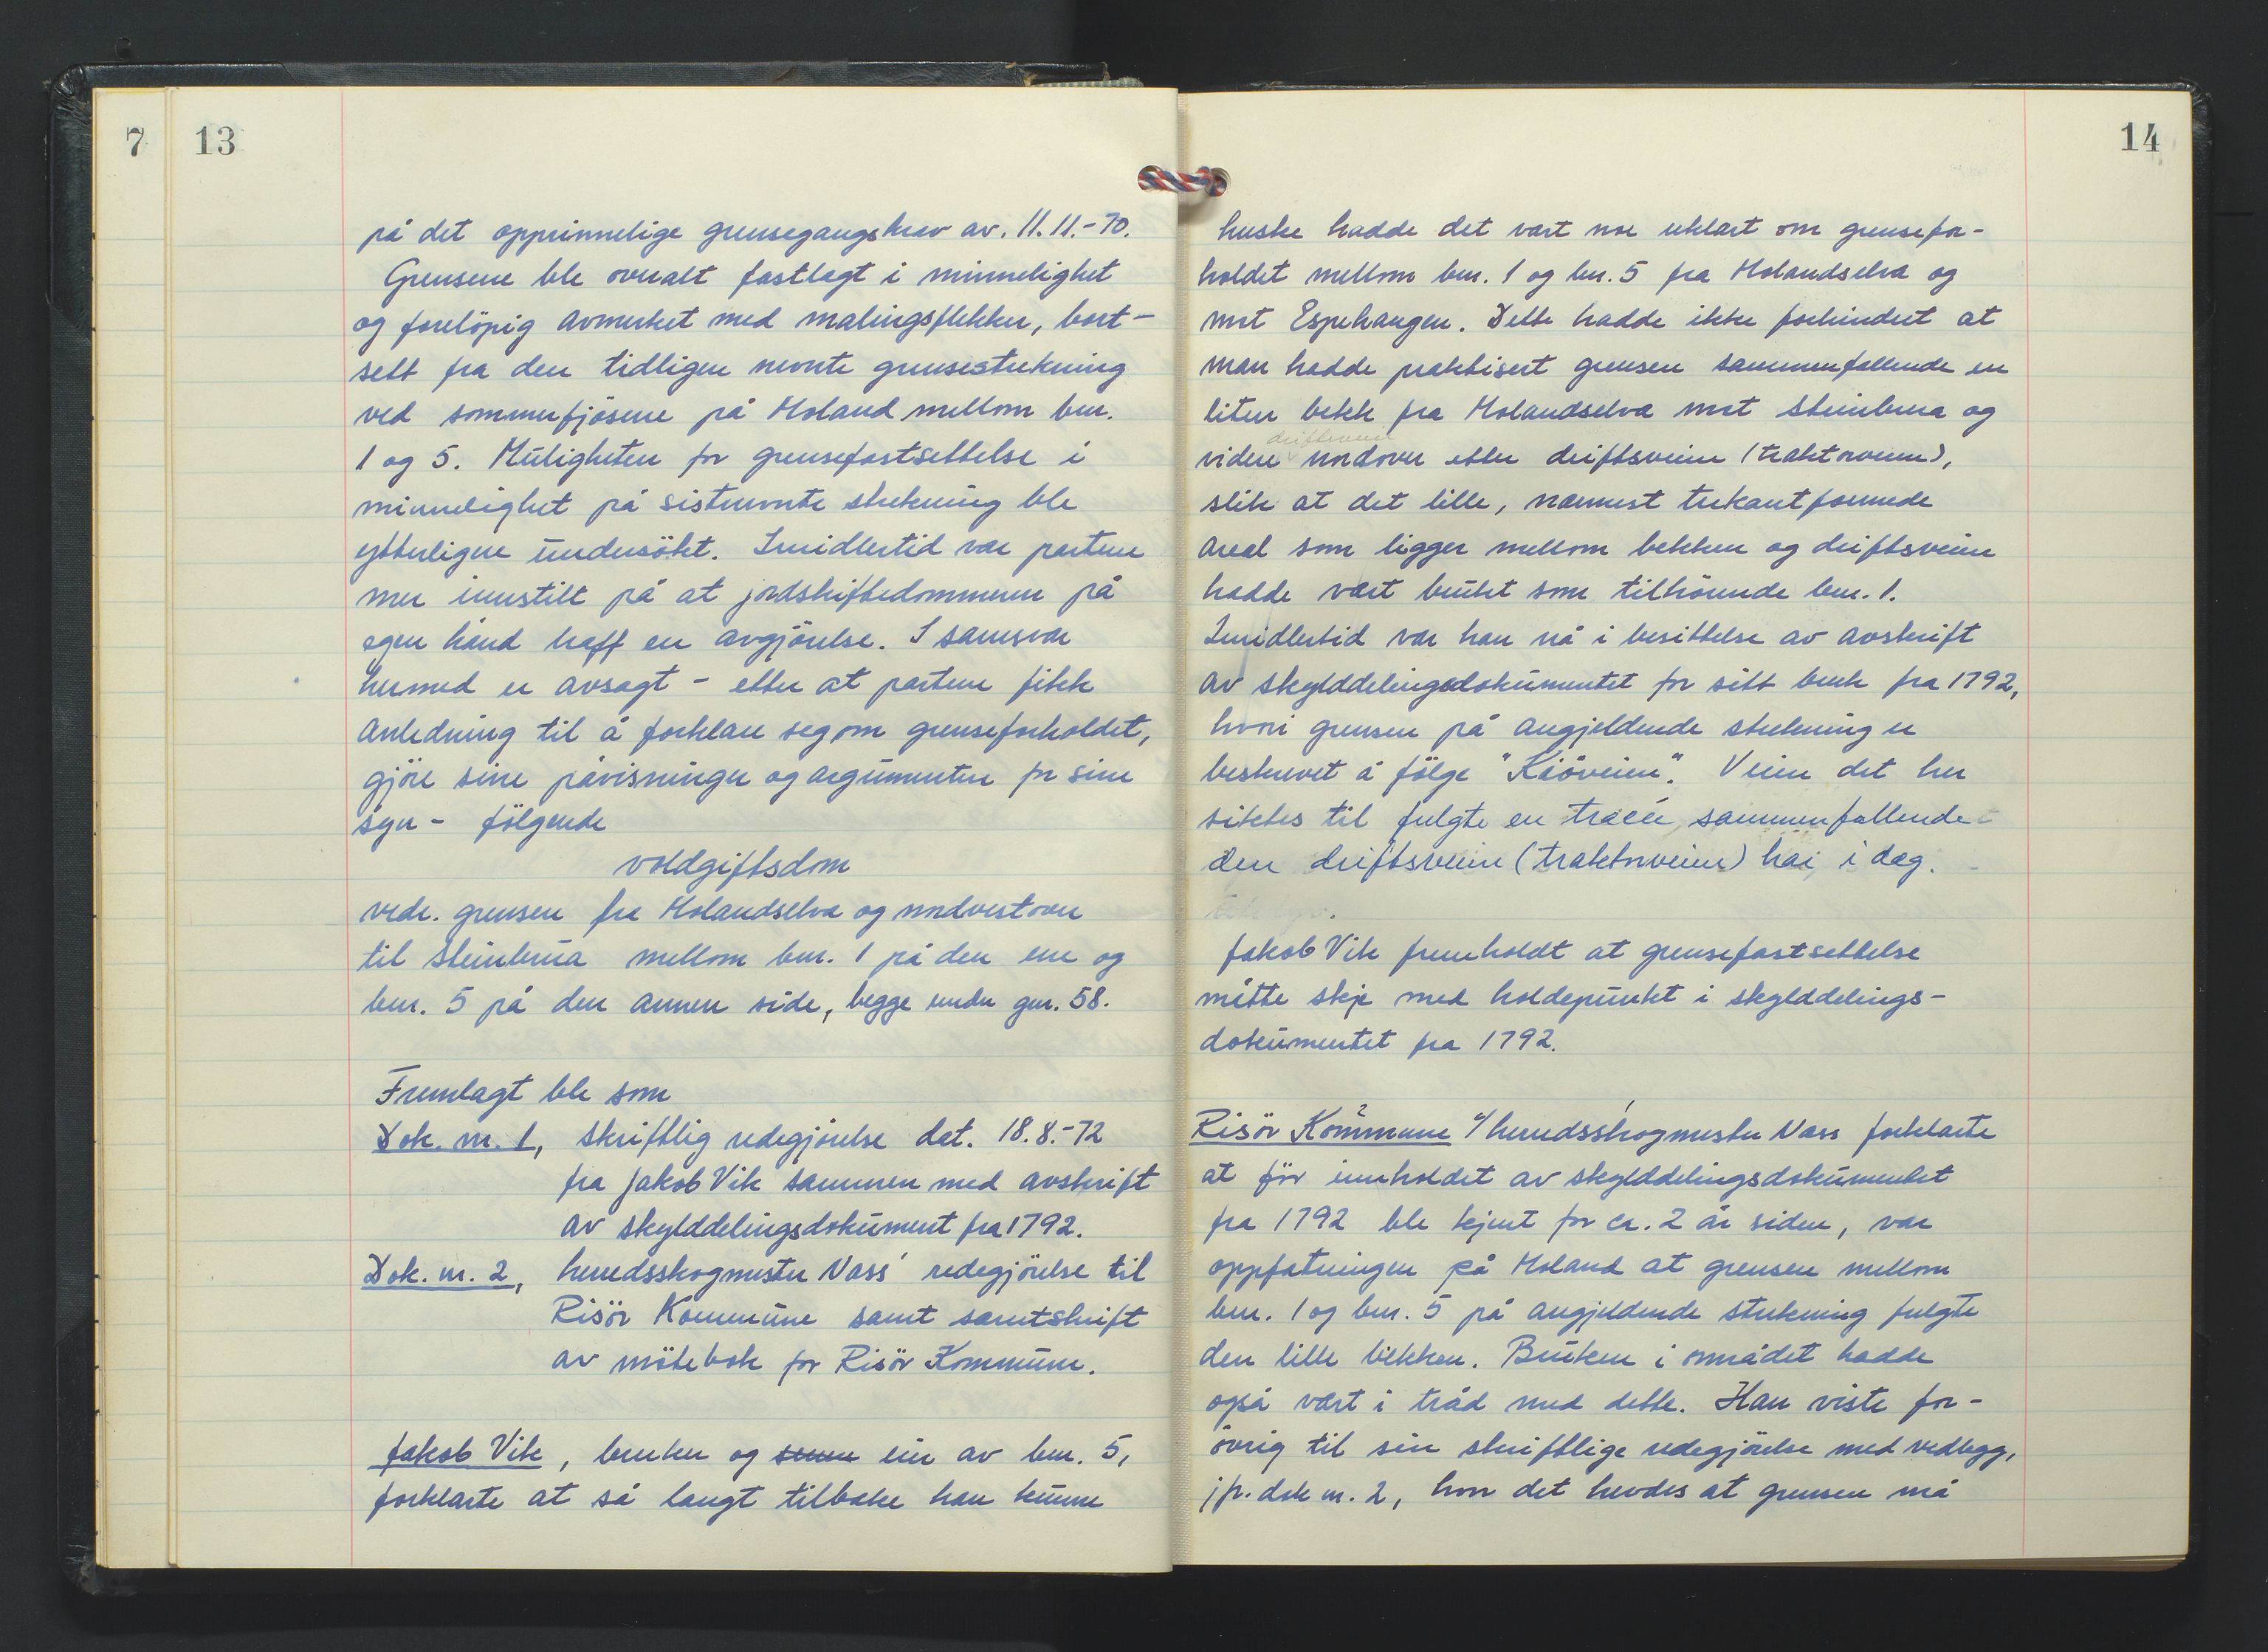 7 13
på det opprinnelige grensegangskrav av. 11.11.-70.
Grensene ble overalt fastlagt i minnelighet
og foreløpig avmerket med malingsflekker, bort-
sett fra den tidligere nevnte grensestrekning
ved sommerfjösene på Moland mellom bnr.
1 og 5. Muligheten for grensefastsettelse i
minnelighet på sistnevnte strekning ble
ytterligere undersökt. Imidlertid var partene
mer innstilt på at jordskiftedommeren på
egen hånd traff en avgjörelse. I samsvar
hermed er avsagt - etter at partene fikk
anledning til å forklare seg om grenseforholdet,
gjöre sine påvisninger og argumenter for sine
syn - fölgende
voldgiftsdom
vedr. grensen fra Molandselva og nordvestover
til Steinbrua mellom bnr. 1 på den ene og
bnr. 5 på den annen side, begge under gnr. 58.
Fremlagt ble som
Dok. nr. 1, skriftlig redegjörelse dat. 18.8.-72
fra Jakob Vik sammen med avskrift
av skylddelingsdokument fra 1792.
Dok. nr. 2, herredsskogmester Vass' redegjörelse til
Risör Kommune samt særutskrift
av mötebok for Risör Kommune.
Jakob Vik, bruker og eier av bnr. 5,
forklarte at så langt tilbake han kunne
14
huske hadde det vært noe uklart om grensefor-
holdet mellom bnr. 1 og bnr. 5 fra Molandselva og
mot Espehaugen. Dette hadde ikke forhindret at
man hadde praktisert grensen sammenfallende en
liten bekk fra Molandselva mot Steinbrua og
driftsveien
videre nordover etter driftsveien (traktorveien),
slik at det lille, nærmest trekantformede
areal som ligger mellom bekken og driftsveien
hadde vært brukt som tilhörende bnr. 1.
Imidlertid var han nå i besittelse av avskrift
av skylddelingsdokumentet for sitt bruk fra 1792,
hvori grensen på angjeldende strekning er
beskrevet å fölge "Kåöveien". Veien det her
siktes til fulgte en tracé, sammenfallende
den driftsveien (traktorveien) har i dag.
Jakob Vik fremholdt at grensefastsettelse
måtte skje med holdepunkt i skylddelings-
dokumentet fra 1792.
Risör Kommune v/herredsskogmester Vass forklarte
at för innholdet av skylddelingsdokumentet
fra 1792 ble kjent for ca. 2 år siden, var
oppfatningen på Moland at grensen mellom
bnr. 1 og bnr. 5 på angjeldende strekning fulgte
den lille bekken. Bruken i området hadde
også vært i tråd med dette. Han viste for-
övrig til sin skriftlige redegjörelse med vedlegg,
jfr. dok nr. 2, hvor det hevdes at grensen må